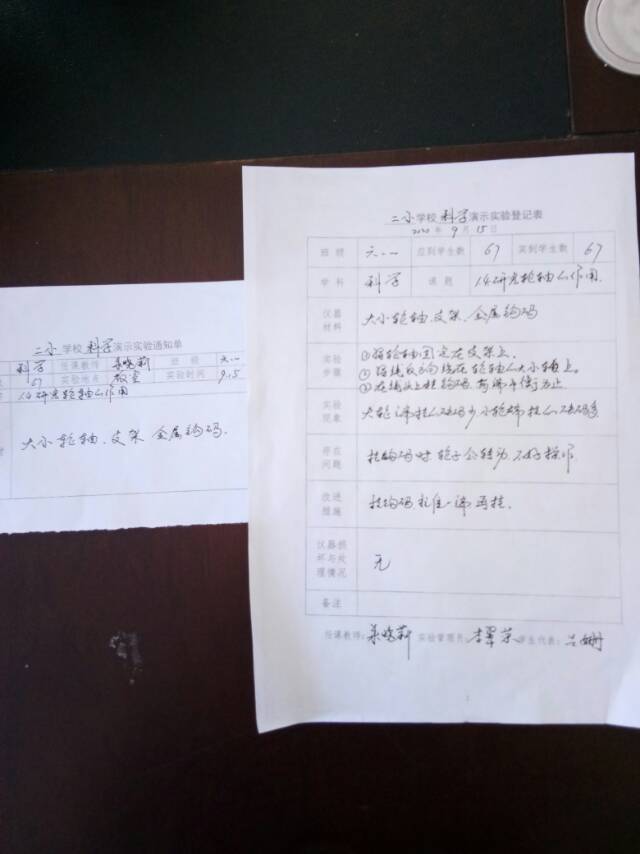 二小学校科学演示实验通知单
科学 任课教师 班级 六.一
67 实验地点 教室 实验时间 9.15
14研究轮轴的作用
大小轮轴、支架 金属钩码.
二小学校科学演示实验登记表
2020年9月15日
班级 六.一 应到学生数 67 实到学生数 67
学科 科学 课题 14研究轮轴的作用.
仪器材料 大小轮轴、支架、金属钩码
实验步骤 ①将轮轴固定在支架上.
②将线反方向绕在轮轴的大小轴上.
③在线头上挂钩码,两端平衡为止
实验现象 大轮端挂的钩码少小轮端挂的钩码多
存在问题 挂钩码时轮子会转动,不好操作
改进措施 挂钩码扎住一端再挂.
仪器损坏与处理情况 无
备注
任课教师: 实验管理员: 学生代表: